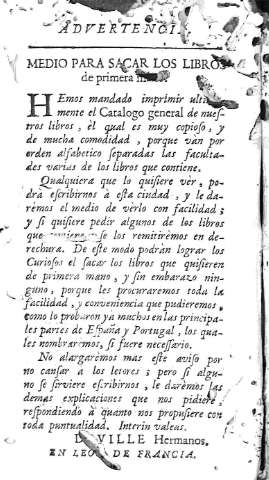 ADVERTENCI
MEDIO PARA SACAR LOS LIBROS
de primera
HEmos mandado imprimir
mente el Catalogo general de nues-
tros libros, el qual es muy copioso, y
de mucha comodidad, porque van por
orden alfabetico separadas las faculta-
des varias de los libros que contiene.
Qualquiera que lo quisiere ver, po-
drà escribirnos à esta ciudad, y le da-
rèmos el medio de verlo con facilidad;
y si quisiere pedir algunos de los libros
que se los remitirèmos en de-
rechura. De este modo podràn lograr los
Curiosos el sacar los libros que quisieren
de primera mano, y sin embarazo nin-
guno, porque les procuraremos toda la
facilidad, y conveniencia que pudieremos,
como lo probaron ya muchos en las principa-
les partes de España y Portugal, los qua-
les nombraremos, si fuere necessario.
No alargarèmos mas este aviso por
no cansar a los letores; pero si algu-
no se sirviere escribirnos, le darèmos las
demas explicaciones que nos pidiere,
respondiendo à quanto nos propusiere con
toda puntualidad. Interin valeas.
VILLE Hermanos,
EN LEON DE FRANCIA.